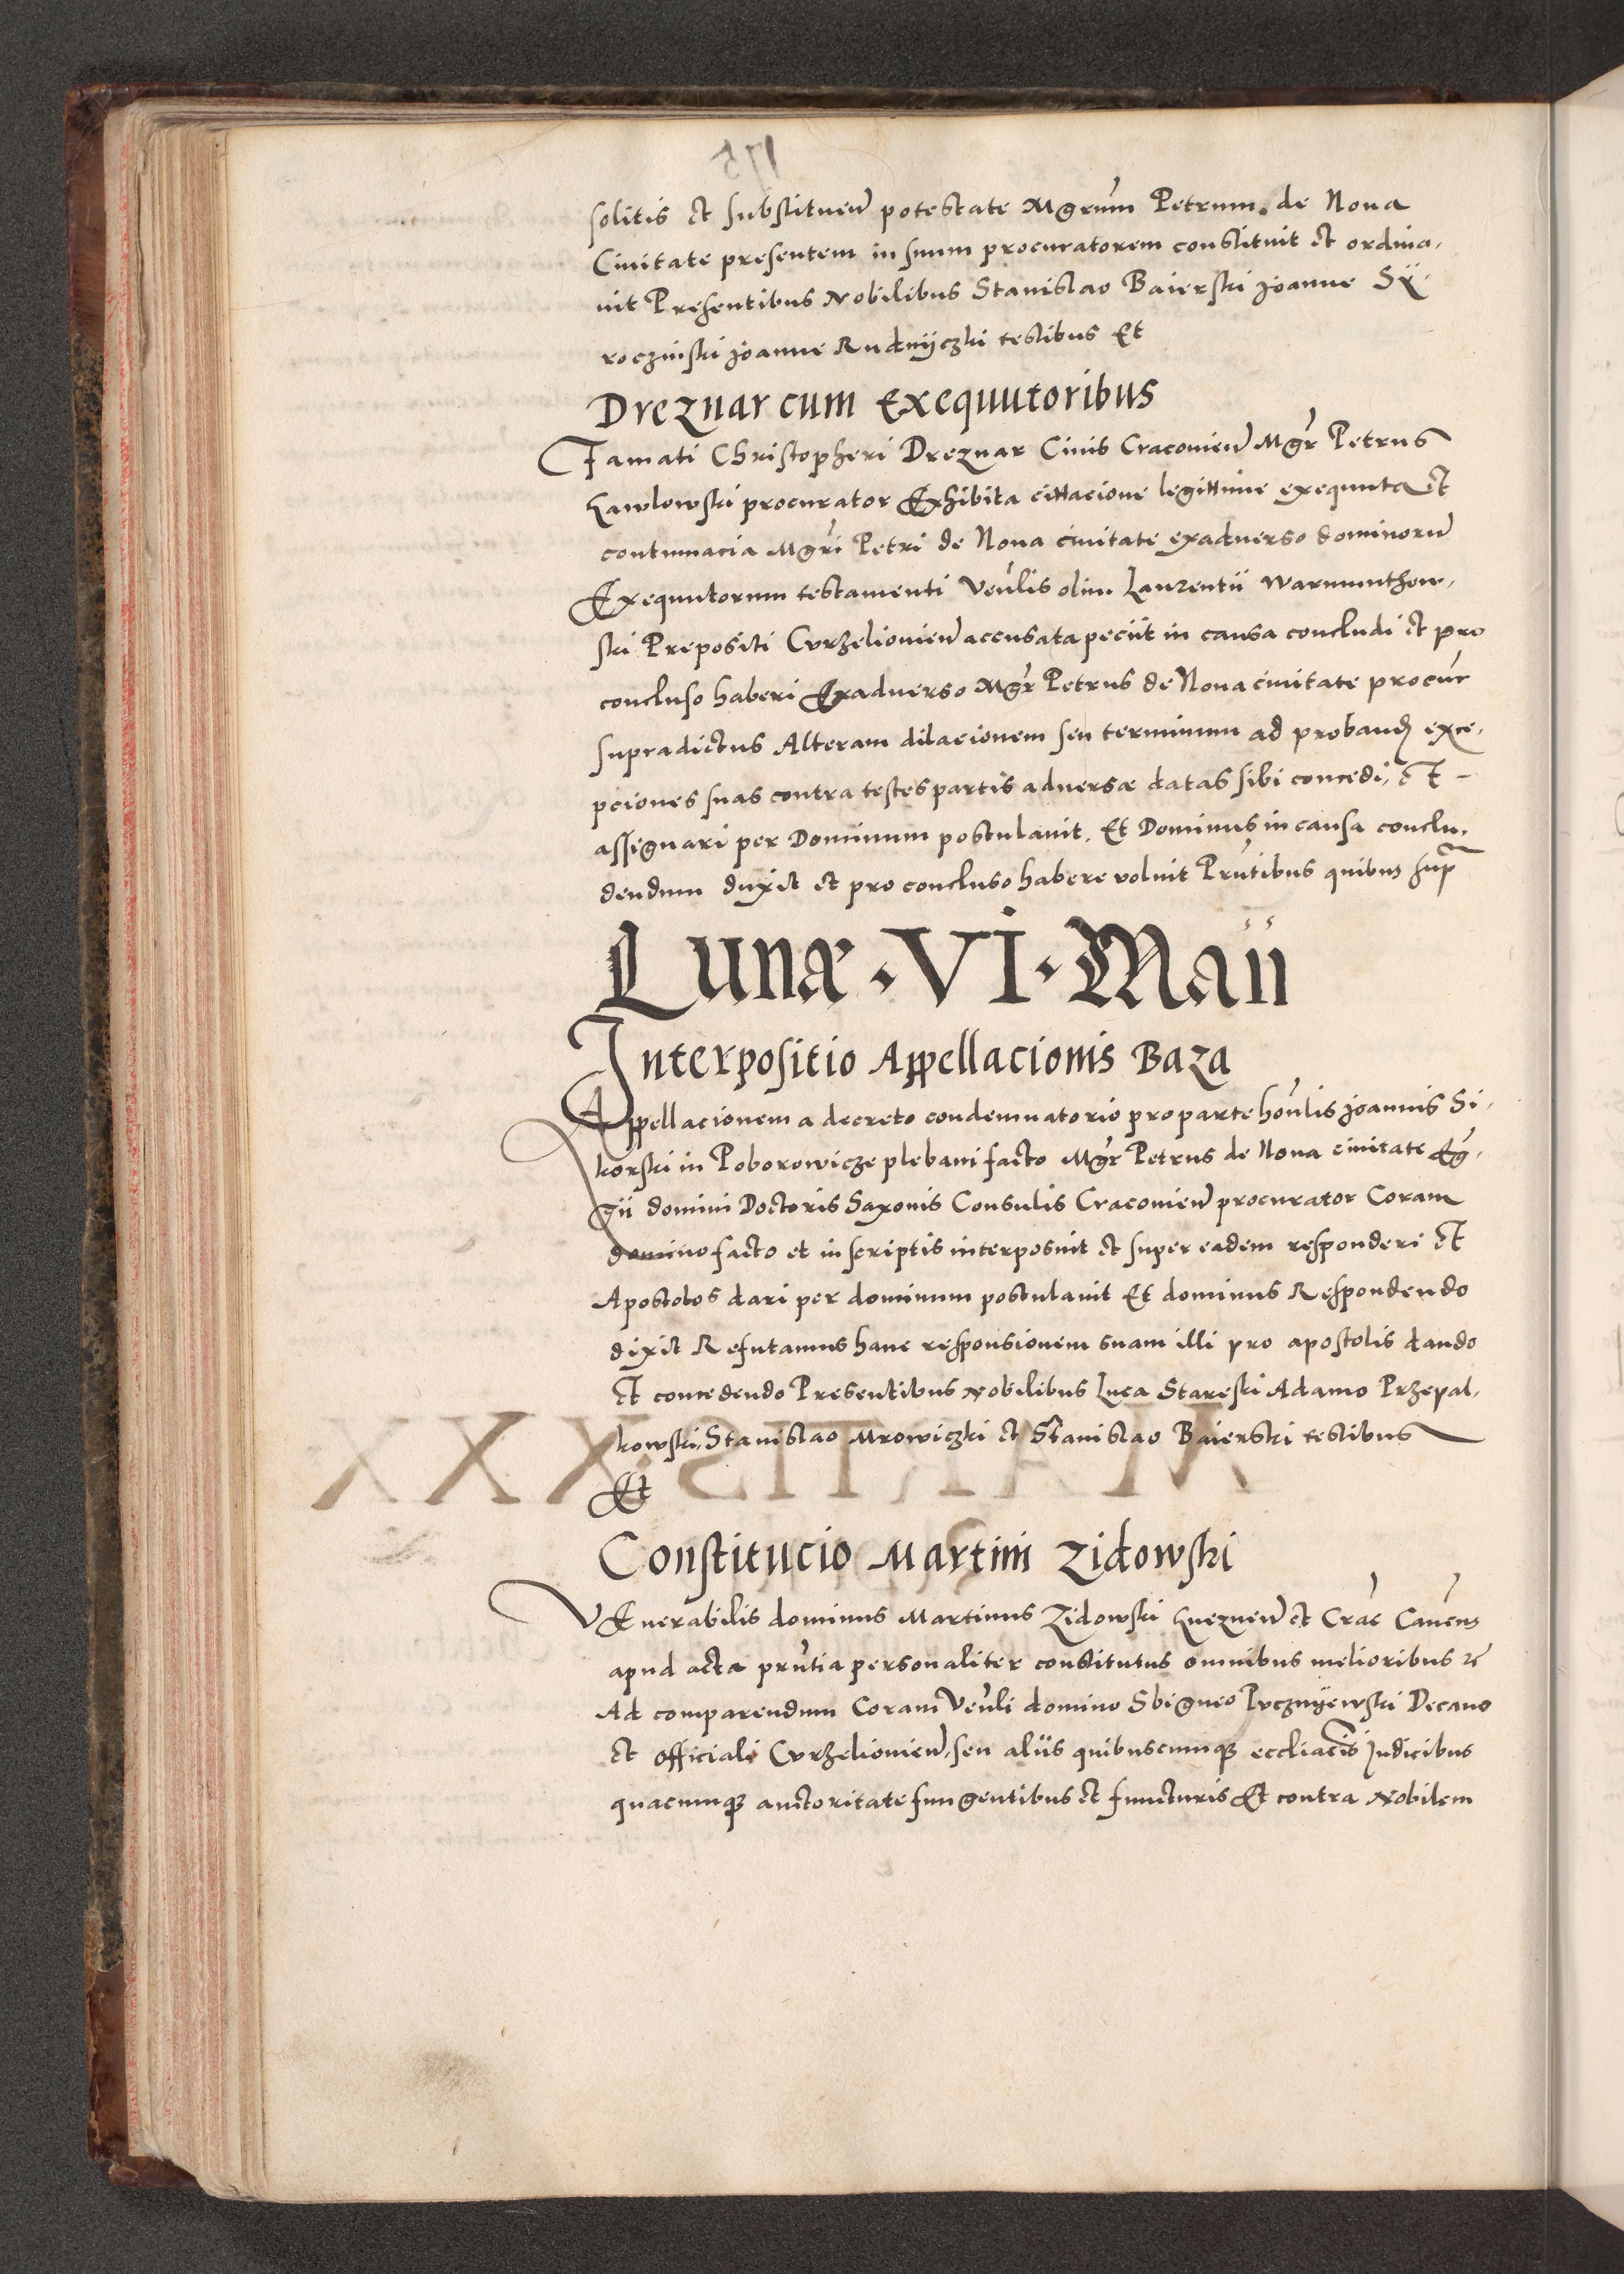 175
solitis et substituen̄ potestate Mgrum Petrum de Noua
Ciuitate presentem in suum procuratorem constituit et ordina-
uit Presentibus Nobilibus Stanislao Baierski Joanne Sÿ-
roczinski Joanne Rudnijczki testibus Et
Dreznar cum Exequutoribus
Famati Christopheri Dreznar Ciuis Cracouien̄ Mgr Petrus
Hawlowski procurator Exhibita cittacione legittime exequuta et
contumacia Mgri Petri de Noua ciuitate exaduerso dominoru̅
Exequutorum testamenti Venlis olim Laurentii Warmunthow-
ski Prepositi Curzelouien̄ accusata peciit in causa concludi et pro
concluso haberi Exaduerso Mgr Petrus de Noua ciuitate procur
supradictus Alteram dilacionem seu terminum ad proband exce-
pciones suas contra testes partis aduersæ datas sibi concedi, et -
assignari per Dominum postulauit. Et Dominus in causa conclu-
dendum duxit et pro concluso habere voluit Prntibus quibus sup̄
Lunæ · VI · Maii
Interpositio Appellacionis Baza
Appellacionem a decreto condemnatorio pro parte honlis Joannis Si-
korski in Poborowicze plebani facto Mgr Petrus de Noua ciuitate Eg-
gii domini Doctoris Saxonis Consulis Cracouien̄ procurator Coram
domino facto et in scriptis interposuit et super eadem responderi et
Apostolos dari per dominum postulauit Et dominus Respondendo
dixit Refutamus hanc responsionem suam illi pro apostolis dando
et concedendo Presentibus Nobilibus Luca Stareski Adamo Przepal-
kowski, Stanislao Mrowiczki et Stanislao Baierski testibus
Et
Constitucio Martini Zidowski
VEnerabilis dominus Martinus Zidowski Gneznen̄ et Crac Canens
apud acta prntia personaliter constitutus omnibus melioribus ꝛc̄
Ad comparendum Coram Venli domino Sbigneo Puczniyewski Decano
et officiali Curzelouien̄, seu aliis quibuscumqꝫ eccliacis Judicibus
quacumqꝫ auctoritate fungentibus et functuris Et contra Nobilem